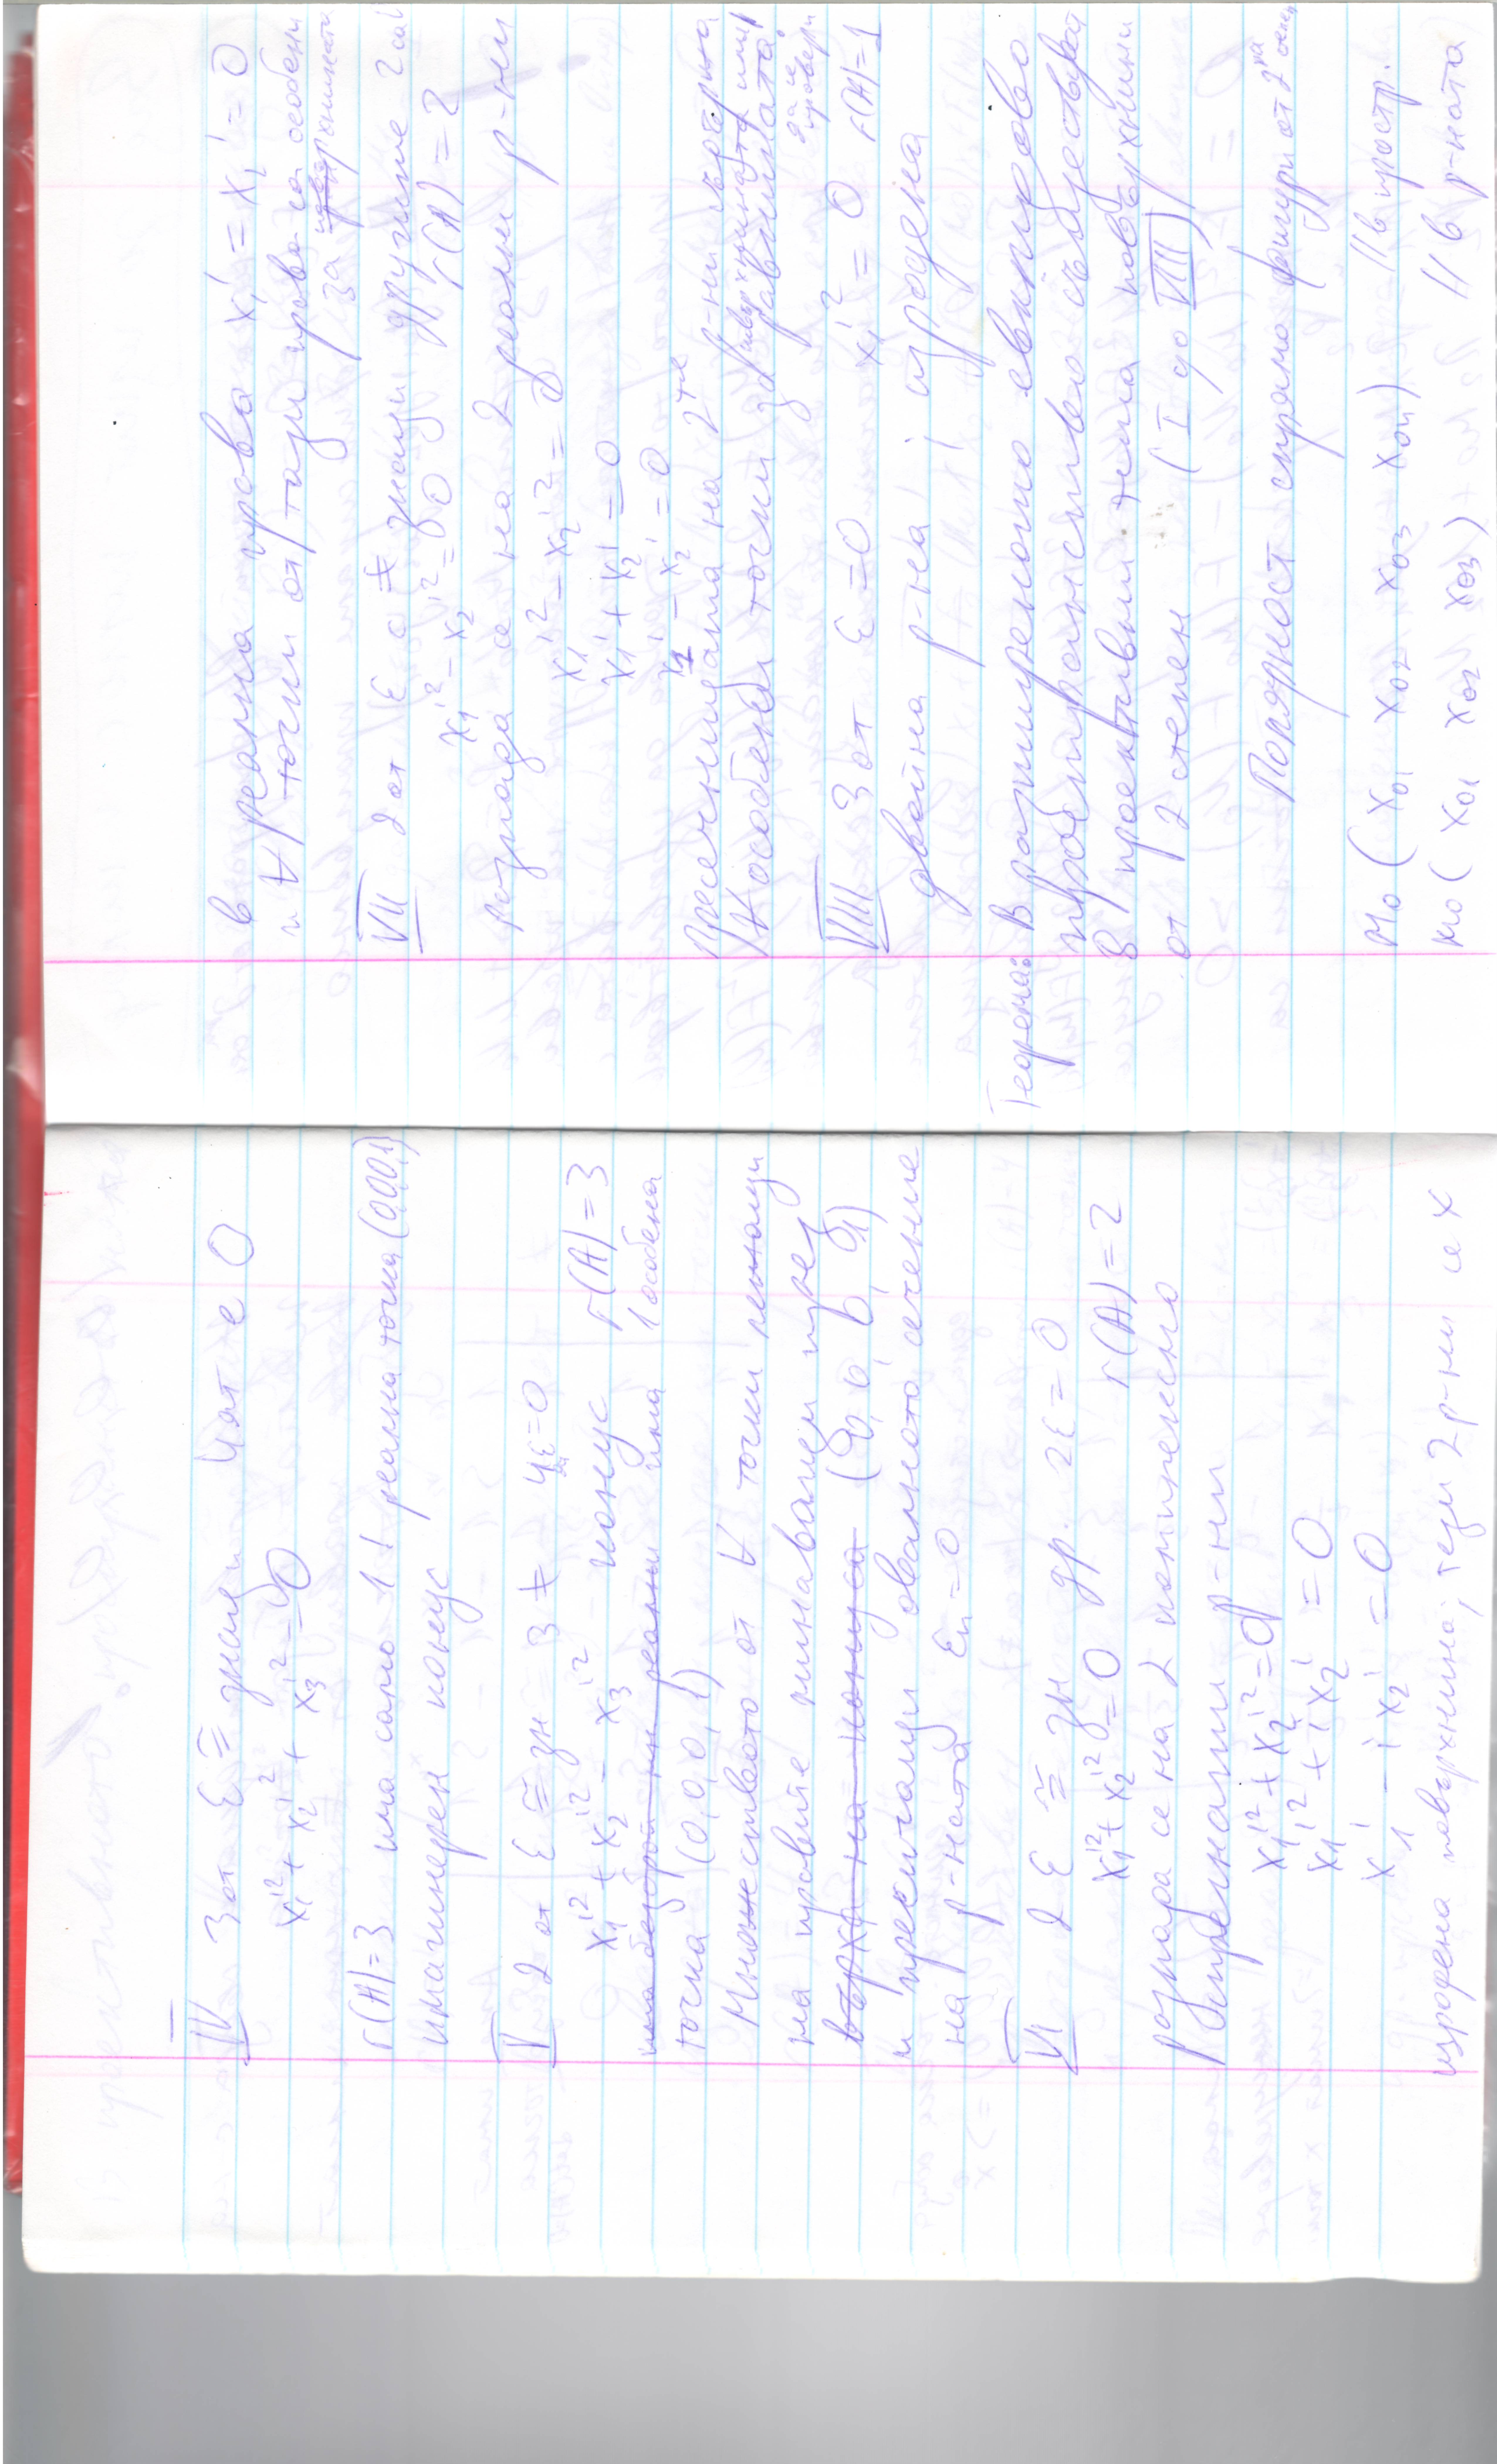 IV 3 от ε ≅ знаци 4ят е 0
x₁'² + x₂'² + x₃'² = 0
r(A)=3 има само 1! реална точка (0,0,0,1)
имагинерен конус
V 2 от ε ≅ зн 3 ≠ 4ε=0
x₁'² + x₂'² - x₃'² конус r(A)=3
има безброй мн реални има 1 особена
точка (0,0,0,1)
Множеството от ∀ точки лежащи
на правите минаващи през
върха на конуса (0,0,0,1)
и пресичащи овалното сечение
на р-ната ε₄=0
VI 2 ε ≅ зн др. 2ε = 0
x₁'² + x₂'² = 0 r(A)=2
разпада се на 2 комплексно
спрегнати р-ни
x₁'² + x₂'² = 0
x₁'² + i x₂' = 0
x₁' - i x₂' = 0
изродена повърхнина, тези 2 р-ни се х
в реална права x₁' = x₂' = 0
и ∀ точки от тази права са особени
за повърхнината
VII 2 от ε с ≠ знаци другите 2 са 0
x₁'² - x₂'² = 0 r(A)=2
разпада се на 2 реални р-ни
x₁'² - x₂'² = 0
x₁' + x₂' = 0
x₁' - x₂' = 0
Пресечницата на 2те р-ни съдържа
∀ особени точки
да се провери
VIII 3 от ε=0 x₁'² = 0 r(A)=1
двойна р-на, изродена
Теорема: В разширеното евклидово
пространство съществуват
8 проективни типа повърхнини
от 2 степен (I до VIII)
Полярност спрямо фигури от 2на степен
M₀ ( x₀₁ x₀₂ x₀₃ x₀₄ ) // в простр.
M₀ ( x₀₁ x₀₂ x₀₃ ) // в р-ната